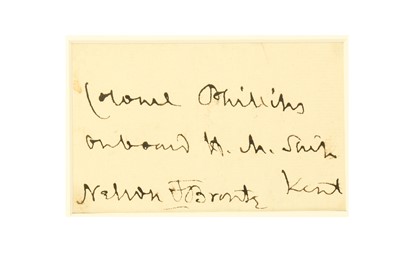 Colonel Phillips
onboard H. M. Ship
Nelson & Bronte Kent